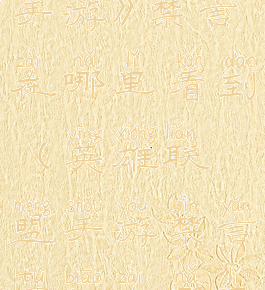 手游》禁言
zài nǎ lǐ kàn dào
在哪里看到
yīng xióng lián
《英雄联
méng shǒu yóu jìn yán
盟手游禁言